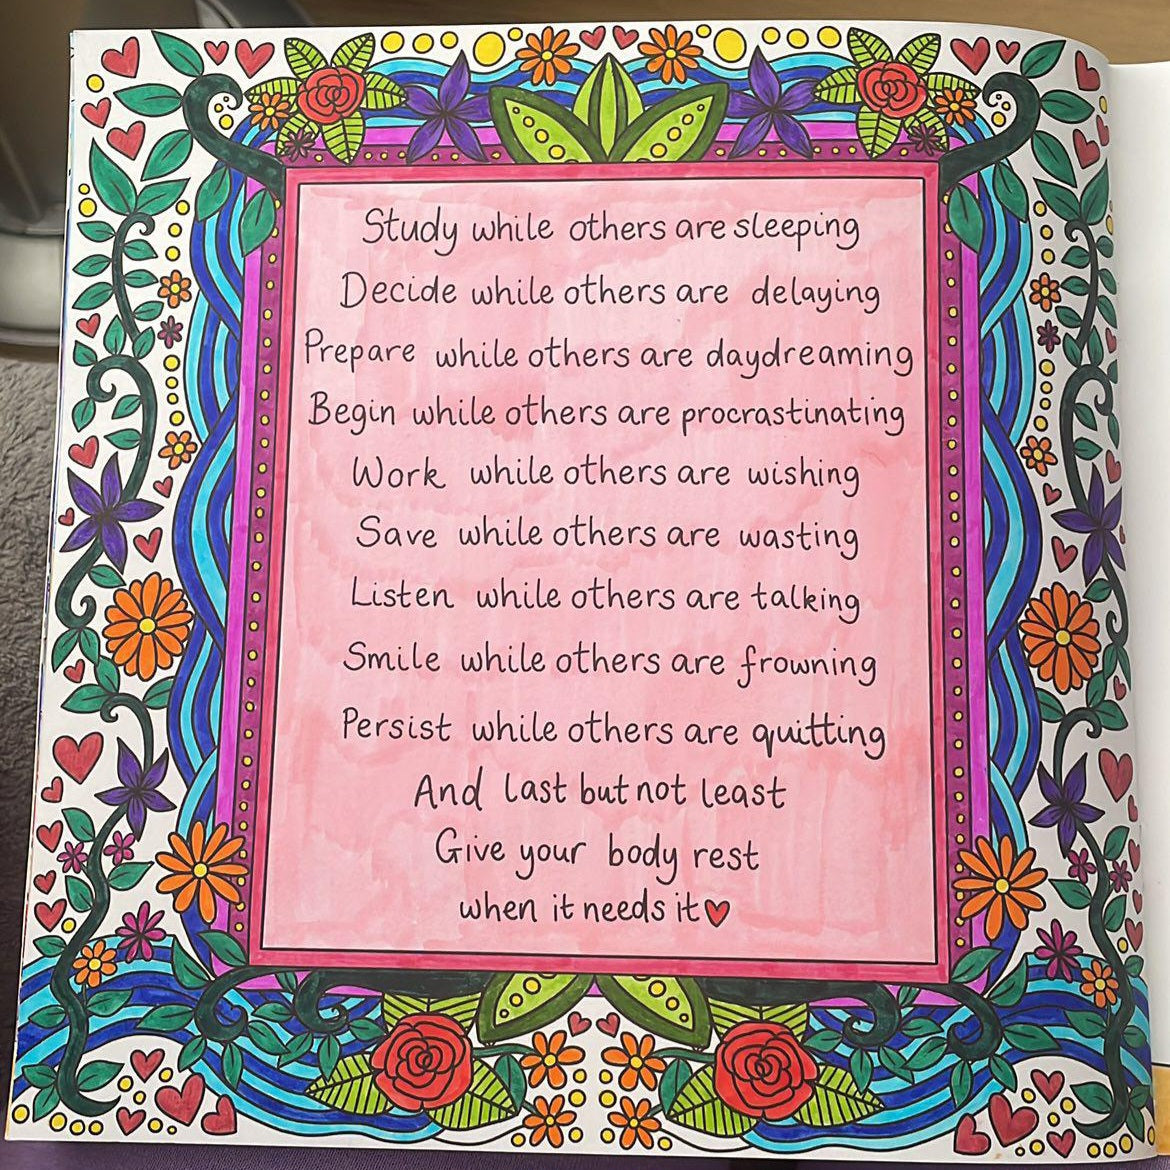 Study while others are sleeping
Decide while others are delaying
Prepare while others are daydreaming
Begin while others are procrastinating
Work while others are wishing
Save while others are wasting
Listen while others are talking
Smile while others are frowning
Persist while others are quitting
And last but not least
Give your body rest
when it needs it♥